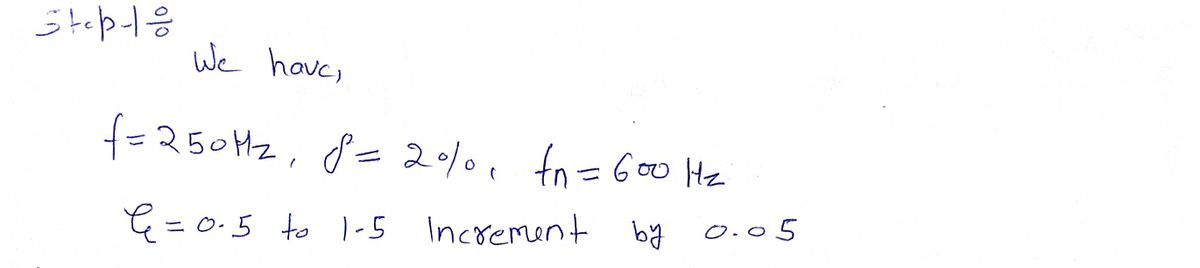 Step-1:
We have,
f = 250 Hz, δ = 2%, fn = 600 Hz
ξ = 0.5 to 1.5 Increment by 0.05